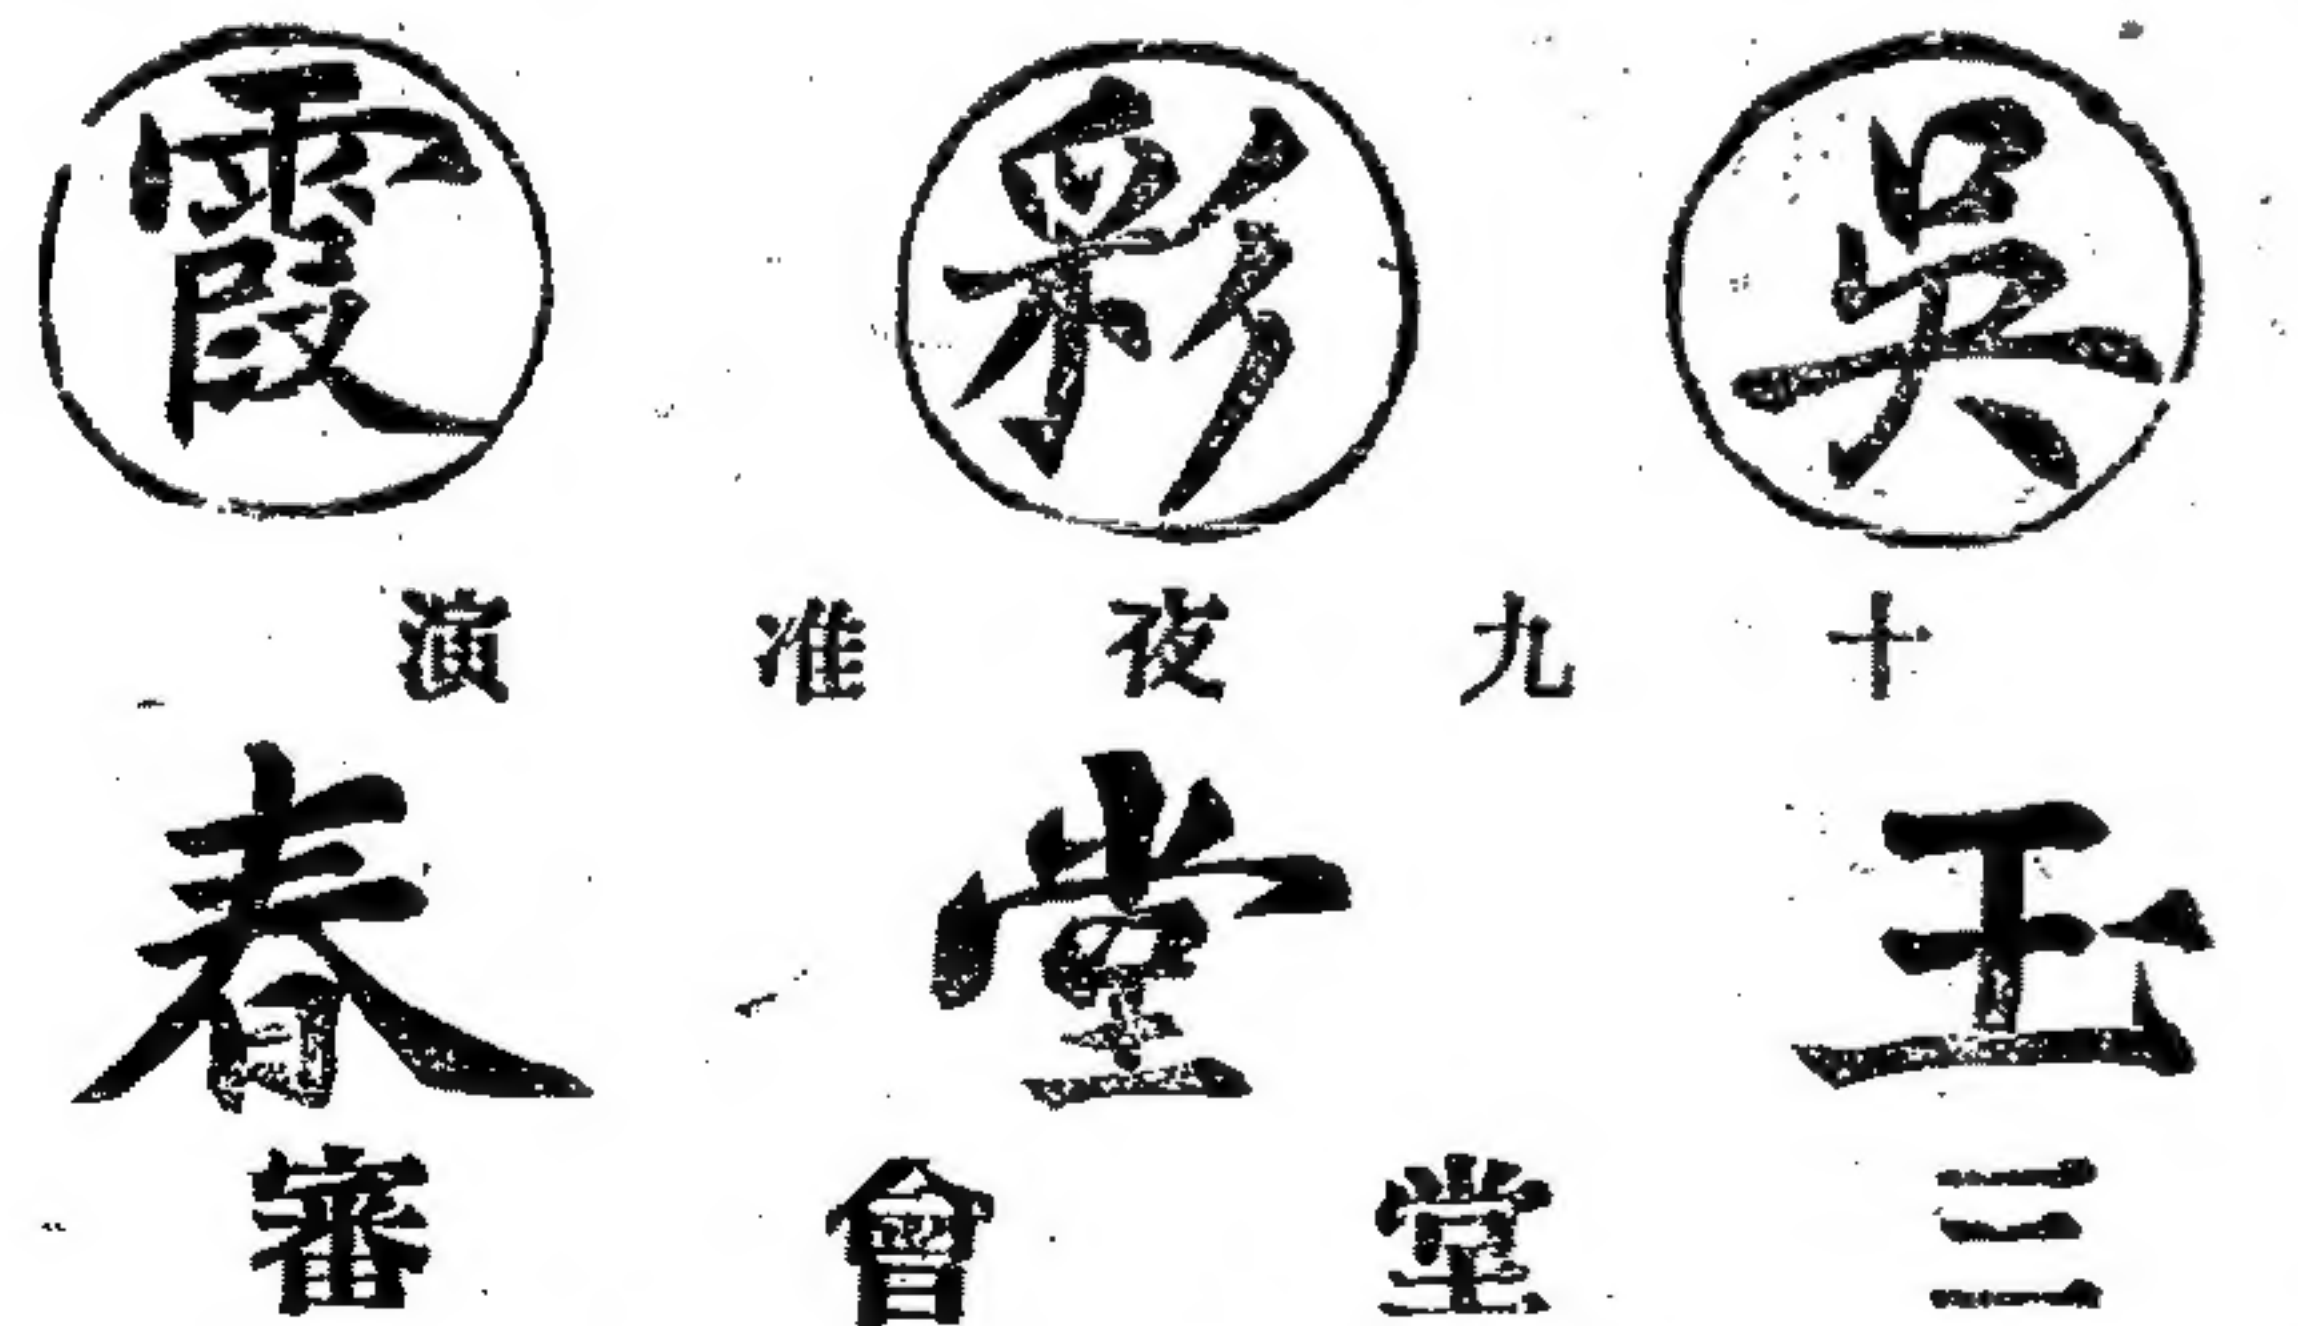 吳彩霞
十九夜准演
玉堂春
三堂會審